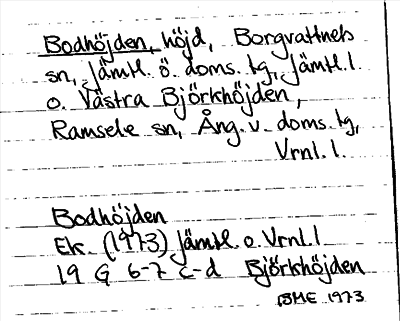 Bodhöjden, höjd, Borgvattnets
sn, Jämtl. ö. doms. tg, Jämtl. l
o. Västra Björkhöjden,
Ramsele sn, Ång. v. doms. tg,
Vrnl. l.
Bodhöjden
Ek. (1973) Jämtl. o. Vrnl. l
19 G 6-7 c-d Björkhöjden
BME 1973